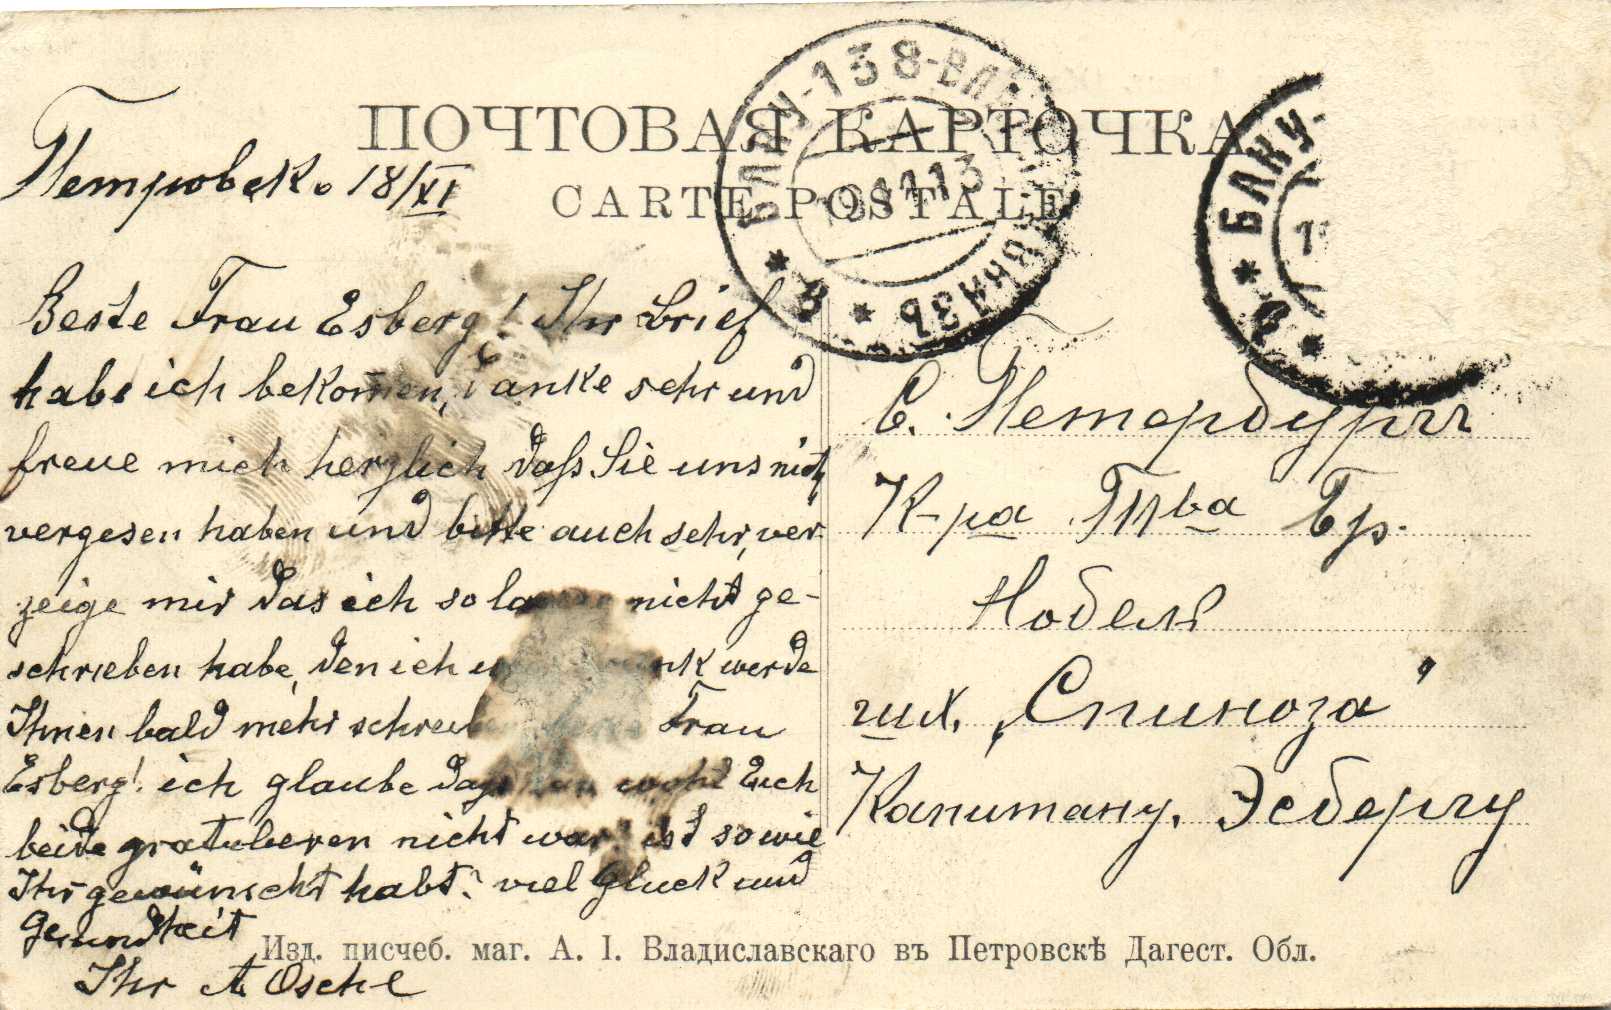 ПОЧТОВАЯ КАРТОЧКА
CARTE POSTALE
БАКУ-138-ВЛА
19 11 13
БАКУ-
Петровскъ 18/XI
Beste Frau Esberg! Ihr Brief
habe ich bekom̄en, danke sehr und
freue mich herzlich daſs Sie uns nicht
vergesen haben und bitte auch sehr, ver-
zeige mir das ich so nicht ge-
schrieben habe, den ich werde
Ihnen bald mehr Frau
Esberg! ich glaube wohl Euch
beide gratulieren nicht war? ist so wie
Ihr gewünscht habt? viel Gluck und
Gesundheit
Ihr A Osche
С. Петербургъ
К-ра Т-ва Бр.
Нобель
шх. „Спиноза"
Капитану. Эсбергу
Изд. писчеб. маг. А. І. Владиславскаго въ Петровскѣ Дагест. Обл.